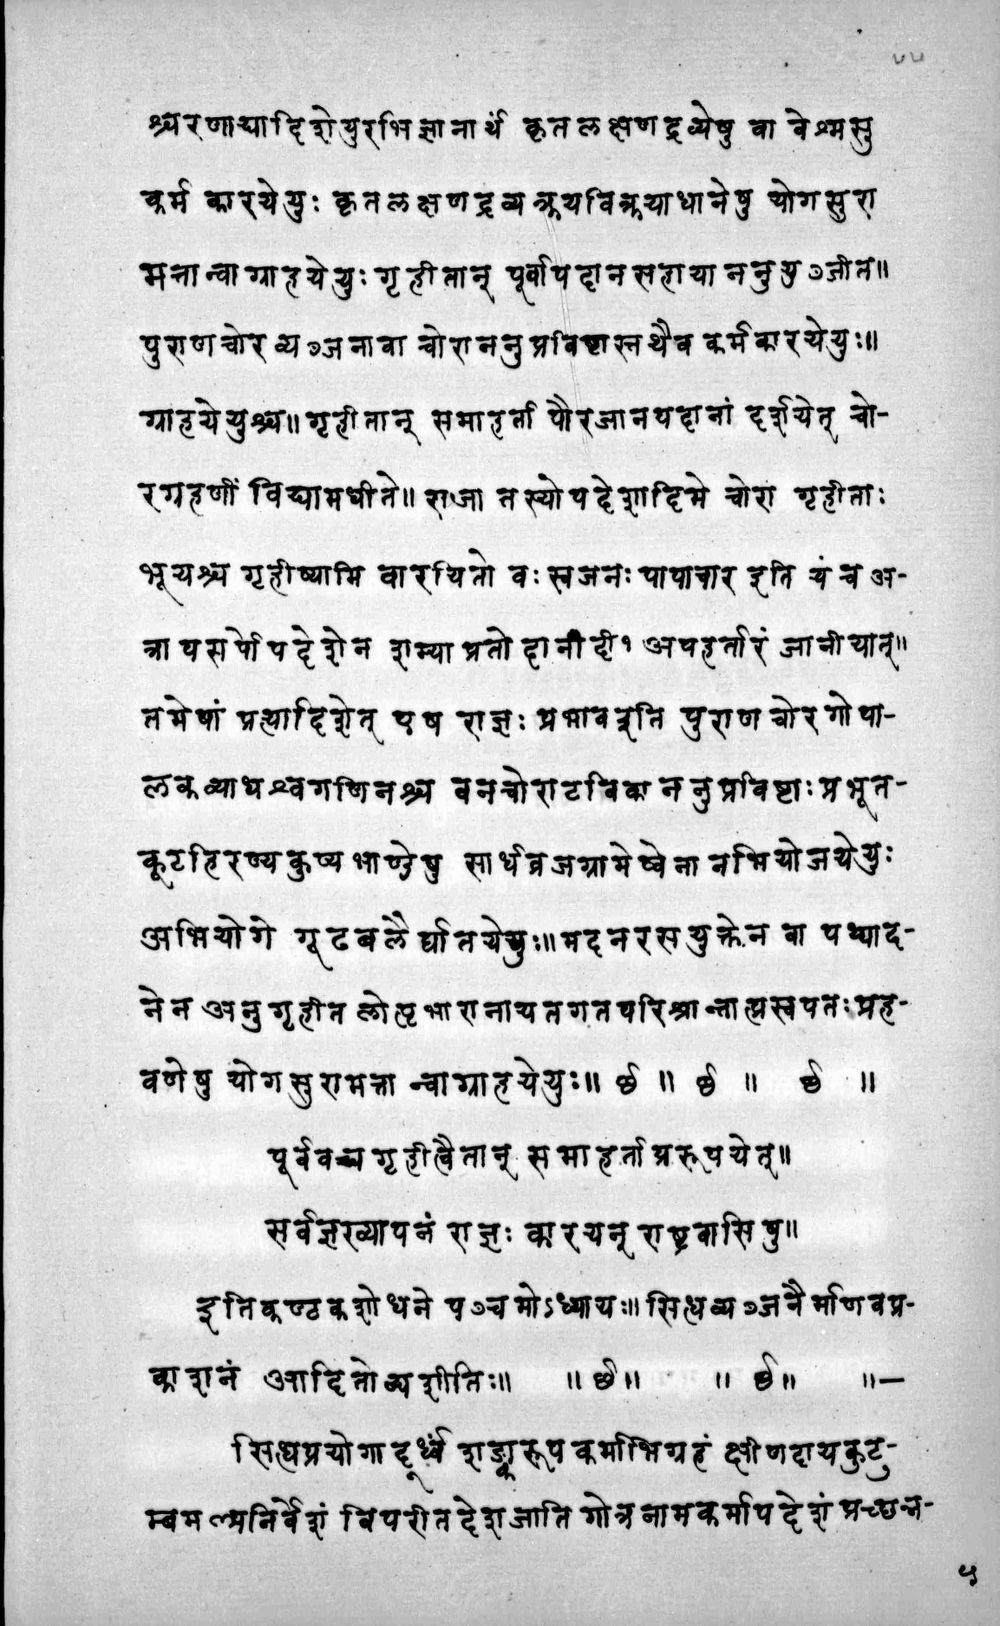 श्चरणाद्यादिशेयुरभिज्ञानार्थं कृतलक्षणद्रव्येषु वा वेश्मसु
कर्म कारयेयुः कृतलक्षणद्रव्यक्रयविक्रयाधानेषु योगसुरा
मत्तान्वाग्राहयेयुः गृहीतान् पूर्वापदानसहायाननुयुञ्जीत॥
पुराणचोरव्यञ्जनावा चोराननुप्रविष्टास्तथैव कर्मकारयेयुः॥
ग्राहयेयुश्च॥ गृहीतान् समाहर्ता पौरजानपदानां दर्शयेत् चो-
रग्रहणीं विद्यामधीते॥ राजा तस्योपदेशादिमे चोरा गृहीताः
भूयश्च गृहीष्यामि वारयितो वः स्वजनः पापाचार इति यं च अ-
त्रापसर्पोपदेशेन शम्याप्रतोदानीदी१ अपहर्तारं जानीयात्॥
तमेषां प्रत्यादिशेत् एष राज्ञः प्रभाव इति पुराणचोरगोपा-
लकव्याधश्वगणिनश्च वनचोराटविकाननुप्रविष्टाः प्रभूत-
कूटहिरण्यकुप्यभाण्डेषु सार्थव्रजग्रामेष्वेनानभियोजयेयुः
अभियोगे गूढबलैर्घातयेयुः॥ मदनरसयुक्तेन वा पथ्याद-
नेन अनुगृहीत लोप्त्रभारानायतगतपरिश्रान्तात्प्रस्वपतः प्रह-
वणेषु योगसुरामत्तान्वाग्राहयेयुः॥ छ ॥ छ ॥ छ ॥
पूर्ववच्च गृहीत्वैतान् समाहर्ता प्ररूपयेत्॥
सर्वज्ञख्यापनं राज्ञः कारयन् राष्ट्रवासिषु॥
इतिकण्टकशोधने पञ्चमोऽध्यायः॥ सिध्दव्यञ्जनैर्माणवप्र-
काशनं आदितोव्यशीतिः॥ ॥ छ॥ ॥ छ॥ ॥—
सिध्दप्रयोगादूर्ध्वं शङ्कारूपकर्माभिग्रहं क्षीणदायकुटु-
म्बमल्पनिर्वेशं विपरीतदेशजातिगोत्रनामकर्मापदेशं प्रच्छन्न-
५